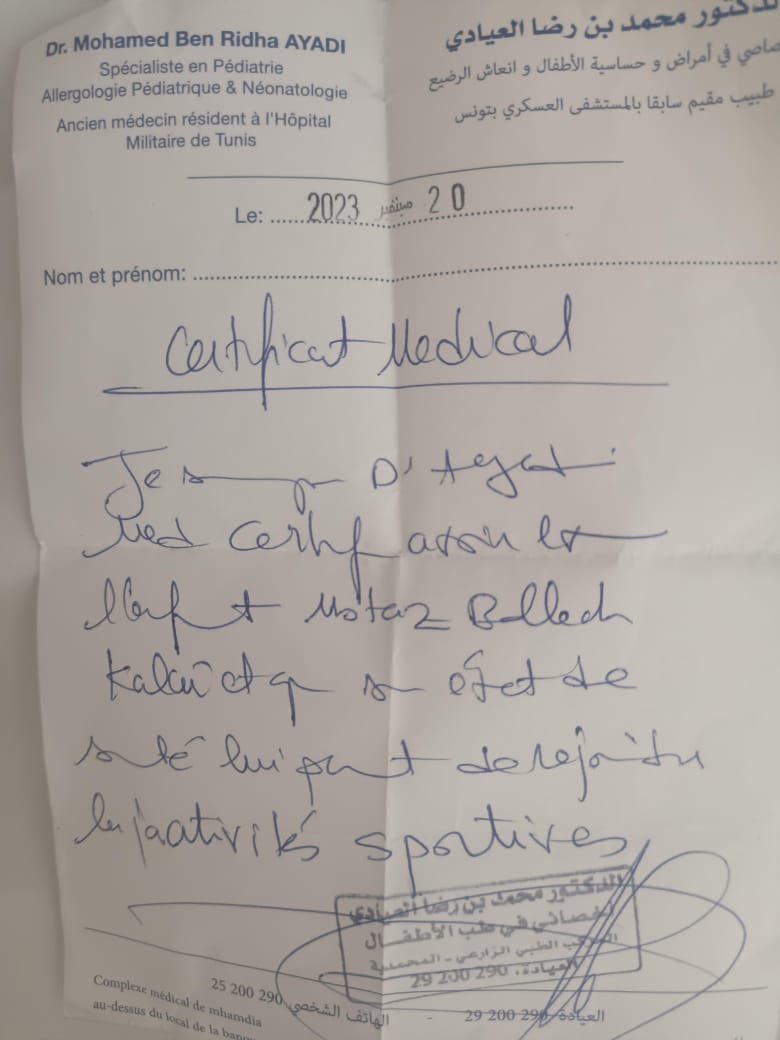 Dr. Mohamed Ben Ridha AYADI
Spécialiste en Pédiatrie
Allergologie Pédiatrique & Néonatologie
Ancien médecin résident à l'Hôpital
Militaire de Tunis
الدكتور محمد بن رضا العيادي
في أمراض و حساسية الأطفال و انعاش الرضيع
طبيب مقيم سابقا بالمستشفى العسكري بتونس
Le: 2023 سبتمبر 20
Nom et prénom:
Certificat Medical
Je D'Ayadi
Med certif avoir
l'enfant Motaz
et état de
santé lui de rejoindre
activités sportives
الدكتور محمد بن رضا العيادي
أخصائي في طب الأطفال
المركب الطبي الزارعي - المحمدية
العيادة: 29 200 290
Complexe médical de mhamdia
au-dessus du local de la
25 200 290 الهاتف الشخصي - 29 200 290 العيادة: